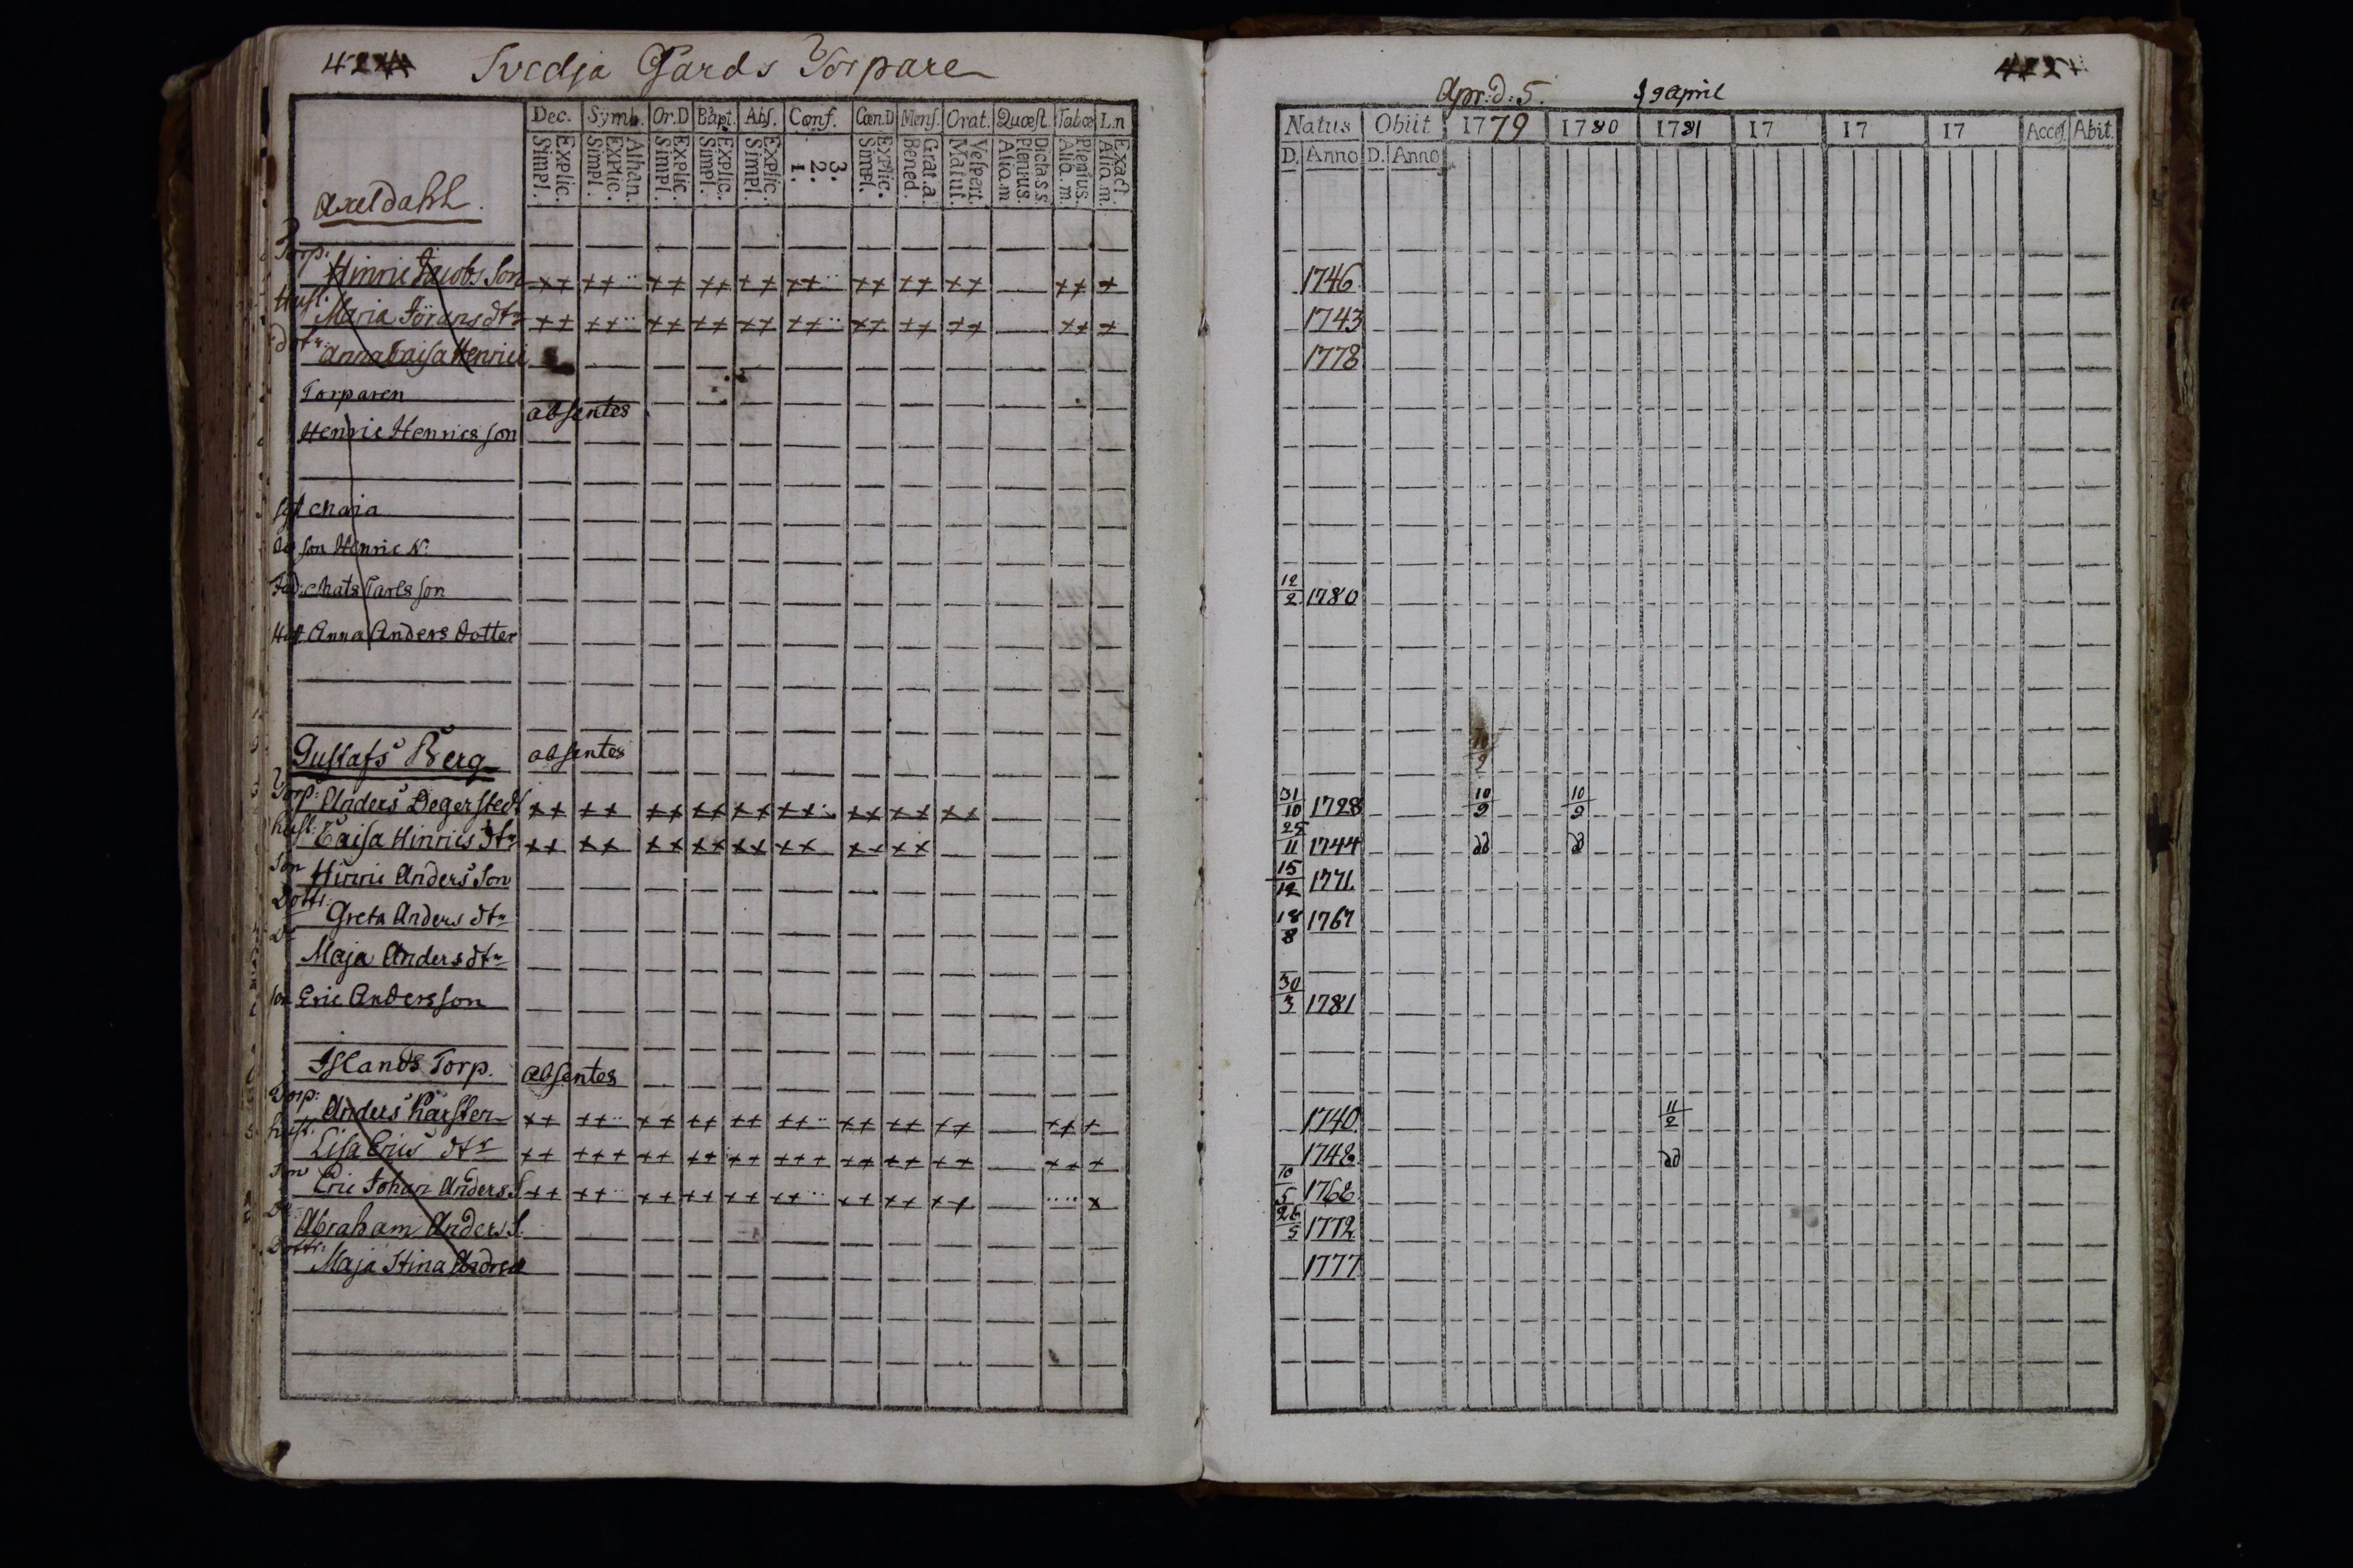 Svedja Gårds Torpare
Dec. Symb. Or.D Bapt. Abs. Conf. Cœn.D Mens. Orat. Quæst. Tabœ L.n
Explic. Simpl. Athan. Explic. Simpl. Explic. Simpl. Explic. Simpl. Explic. Simpl. 3. 2. 1. Explic. Simpl. Grat.a. Bened. Vespert. Matut. Dicta.s.s. Plenius. Aliq.m Plenius. Aliq.m. Exact. Aliq.m.
Axeldahl.
Torp: Hinric Jacobs Son ++ ++ ++ ++ ++ ++ ++ ++ ++ ++ +
Hust: Maria Jörans dtr ++ ++ ++ ++ ++ ++ ++ ++ ++ ++ +
dtr Anna Caisa Henrici
Torparen absentes
Henric Henrics son
hst Maia
son Henric
Mats Carls son
Hst. Anna Anders dotter
Gustafs Berg absentes
Torp: Anders Degerstedt ++ ++ ++ ++ ++ ++ ++ ++ ++
hust: Caisa Hinrics dtr ++ ++ ++ ++ ++ ++ ++ ++
Son Hinric Anders Son
Dottr: Greta Anders dtr
Do Maja Anders dtr
son Eric Andersson
Islands Torp. absentes
Torp: Anders Karsten ++ ++ ++ ++ ++ ++ ++ ++ ++ ++ +
hust: Lisa Erics dtr ++ +++ ++ ++ ++ +++ ++ ++ ++ ++ +
Son Eric Johan Anders S. ++ ++ ++ ++ ++ ++ ++ ++ ++ x
Do Abraham Anders S.
Dottr: Maja Stina Andrea
Apr: d: 5. 9 April
Natus Obiit 1779 1780 1781 17 17 17 Acces. Abit.
D. Anno D. Anno
1746
1743
1778
12/2 1780
31/10 1728 10/9 10/9
25/11 1744 dd d
15/12 1771
18/8 1767
30/3 1781
1740 11/2
1748 dd
10/5 1768
26/5 1772
1777